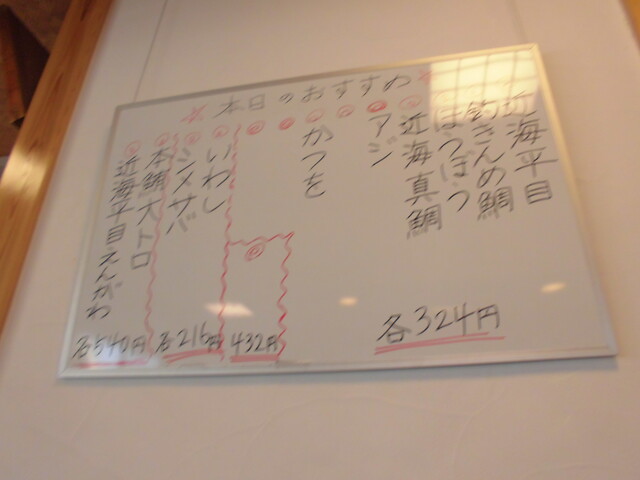 本日のおすすめ
近海平目
釣きんめ鯛
ほうぼう
近海真鯛
アジ
かつを
各324円
432円
いわし
シメサバ
各216円
本鮪大トロ
近海平目えんがわ
各540円